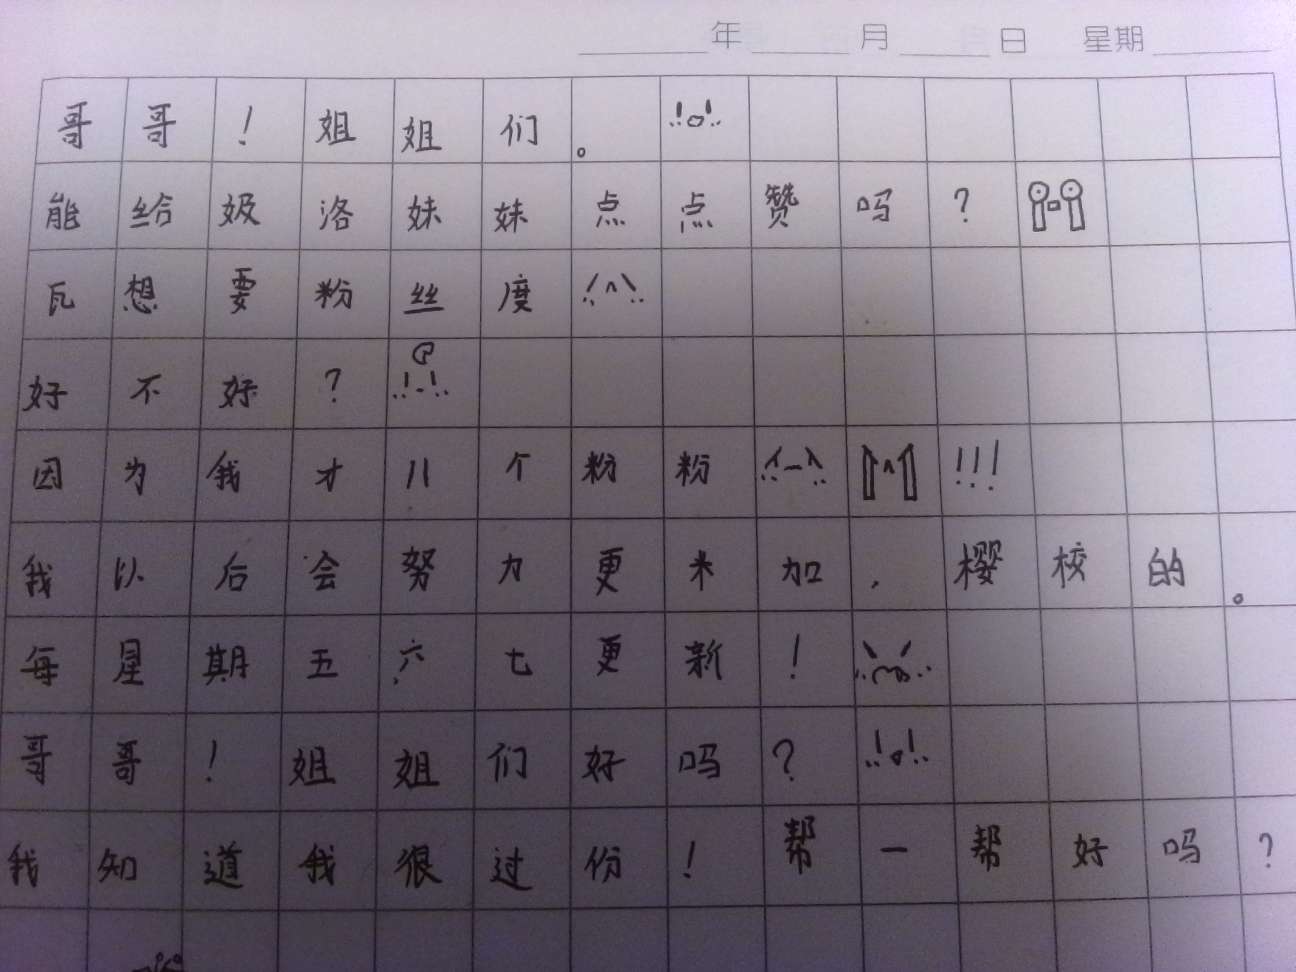 年 月 日 星期
哥哥！姐姐们。
能给妭洛妹妹点点赞吗？
瓦想要粉丝度
好不好？
因为我才儿个粉粉!!!
我以后会努力更米加，樱校的。
每星期五六七更新！
哥哥！姐姐们好吗？
我知道我很过份！帮一帮好吗？